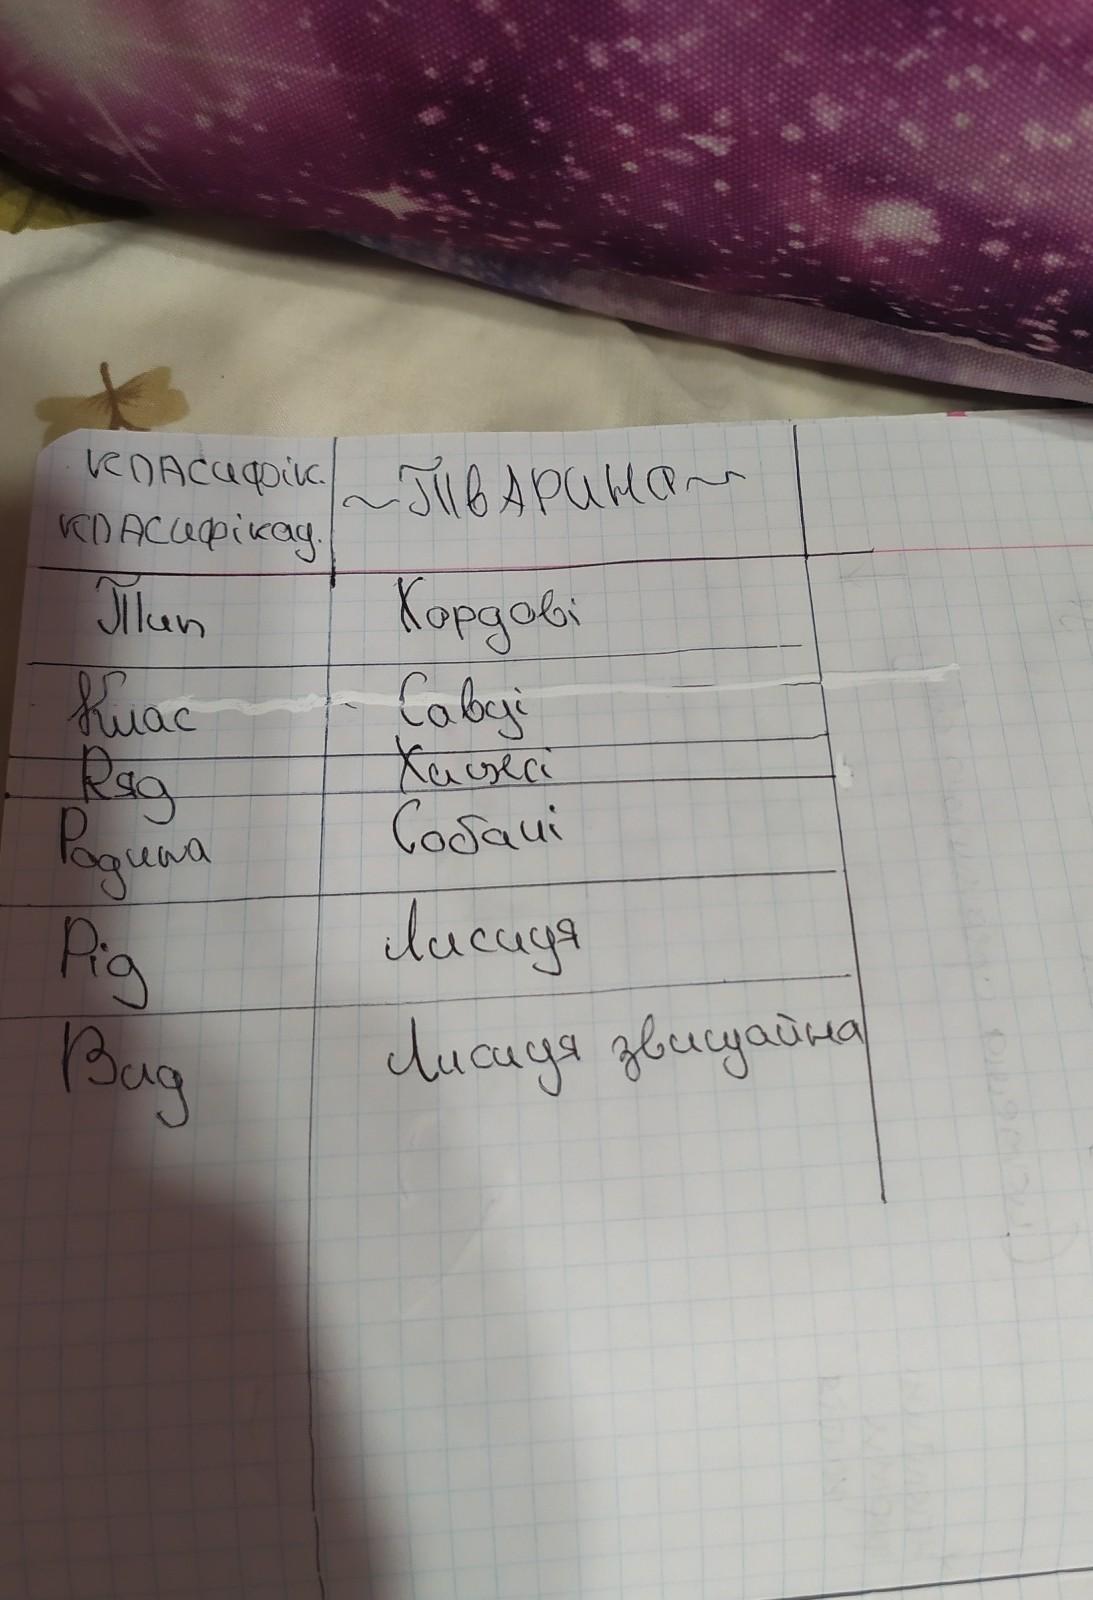 КЛАСифік. ~ТВАРИНА~
КЛАСифікац.
Тип Хордові
Клас Савці
Ряд Хижі
Родина Собачі
Рід Лисиця
Вид Лисиця звичайна